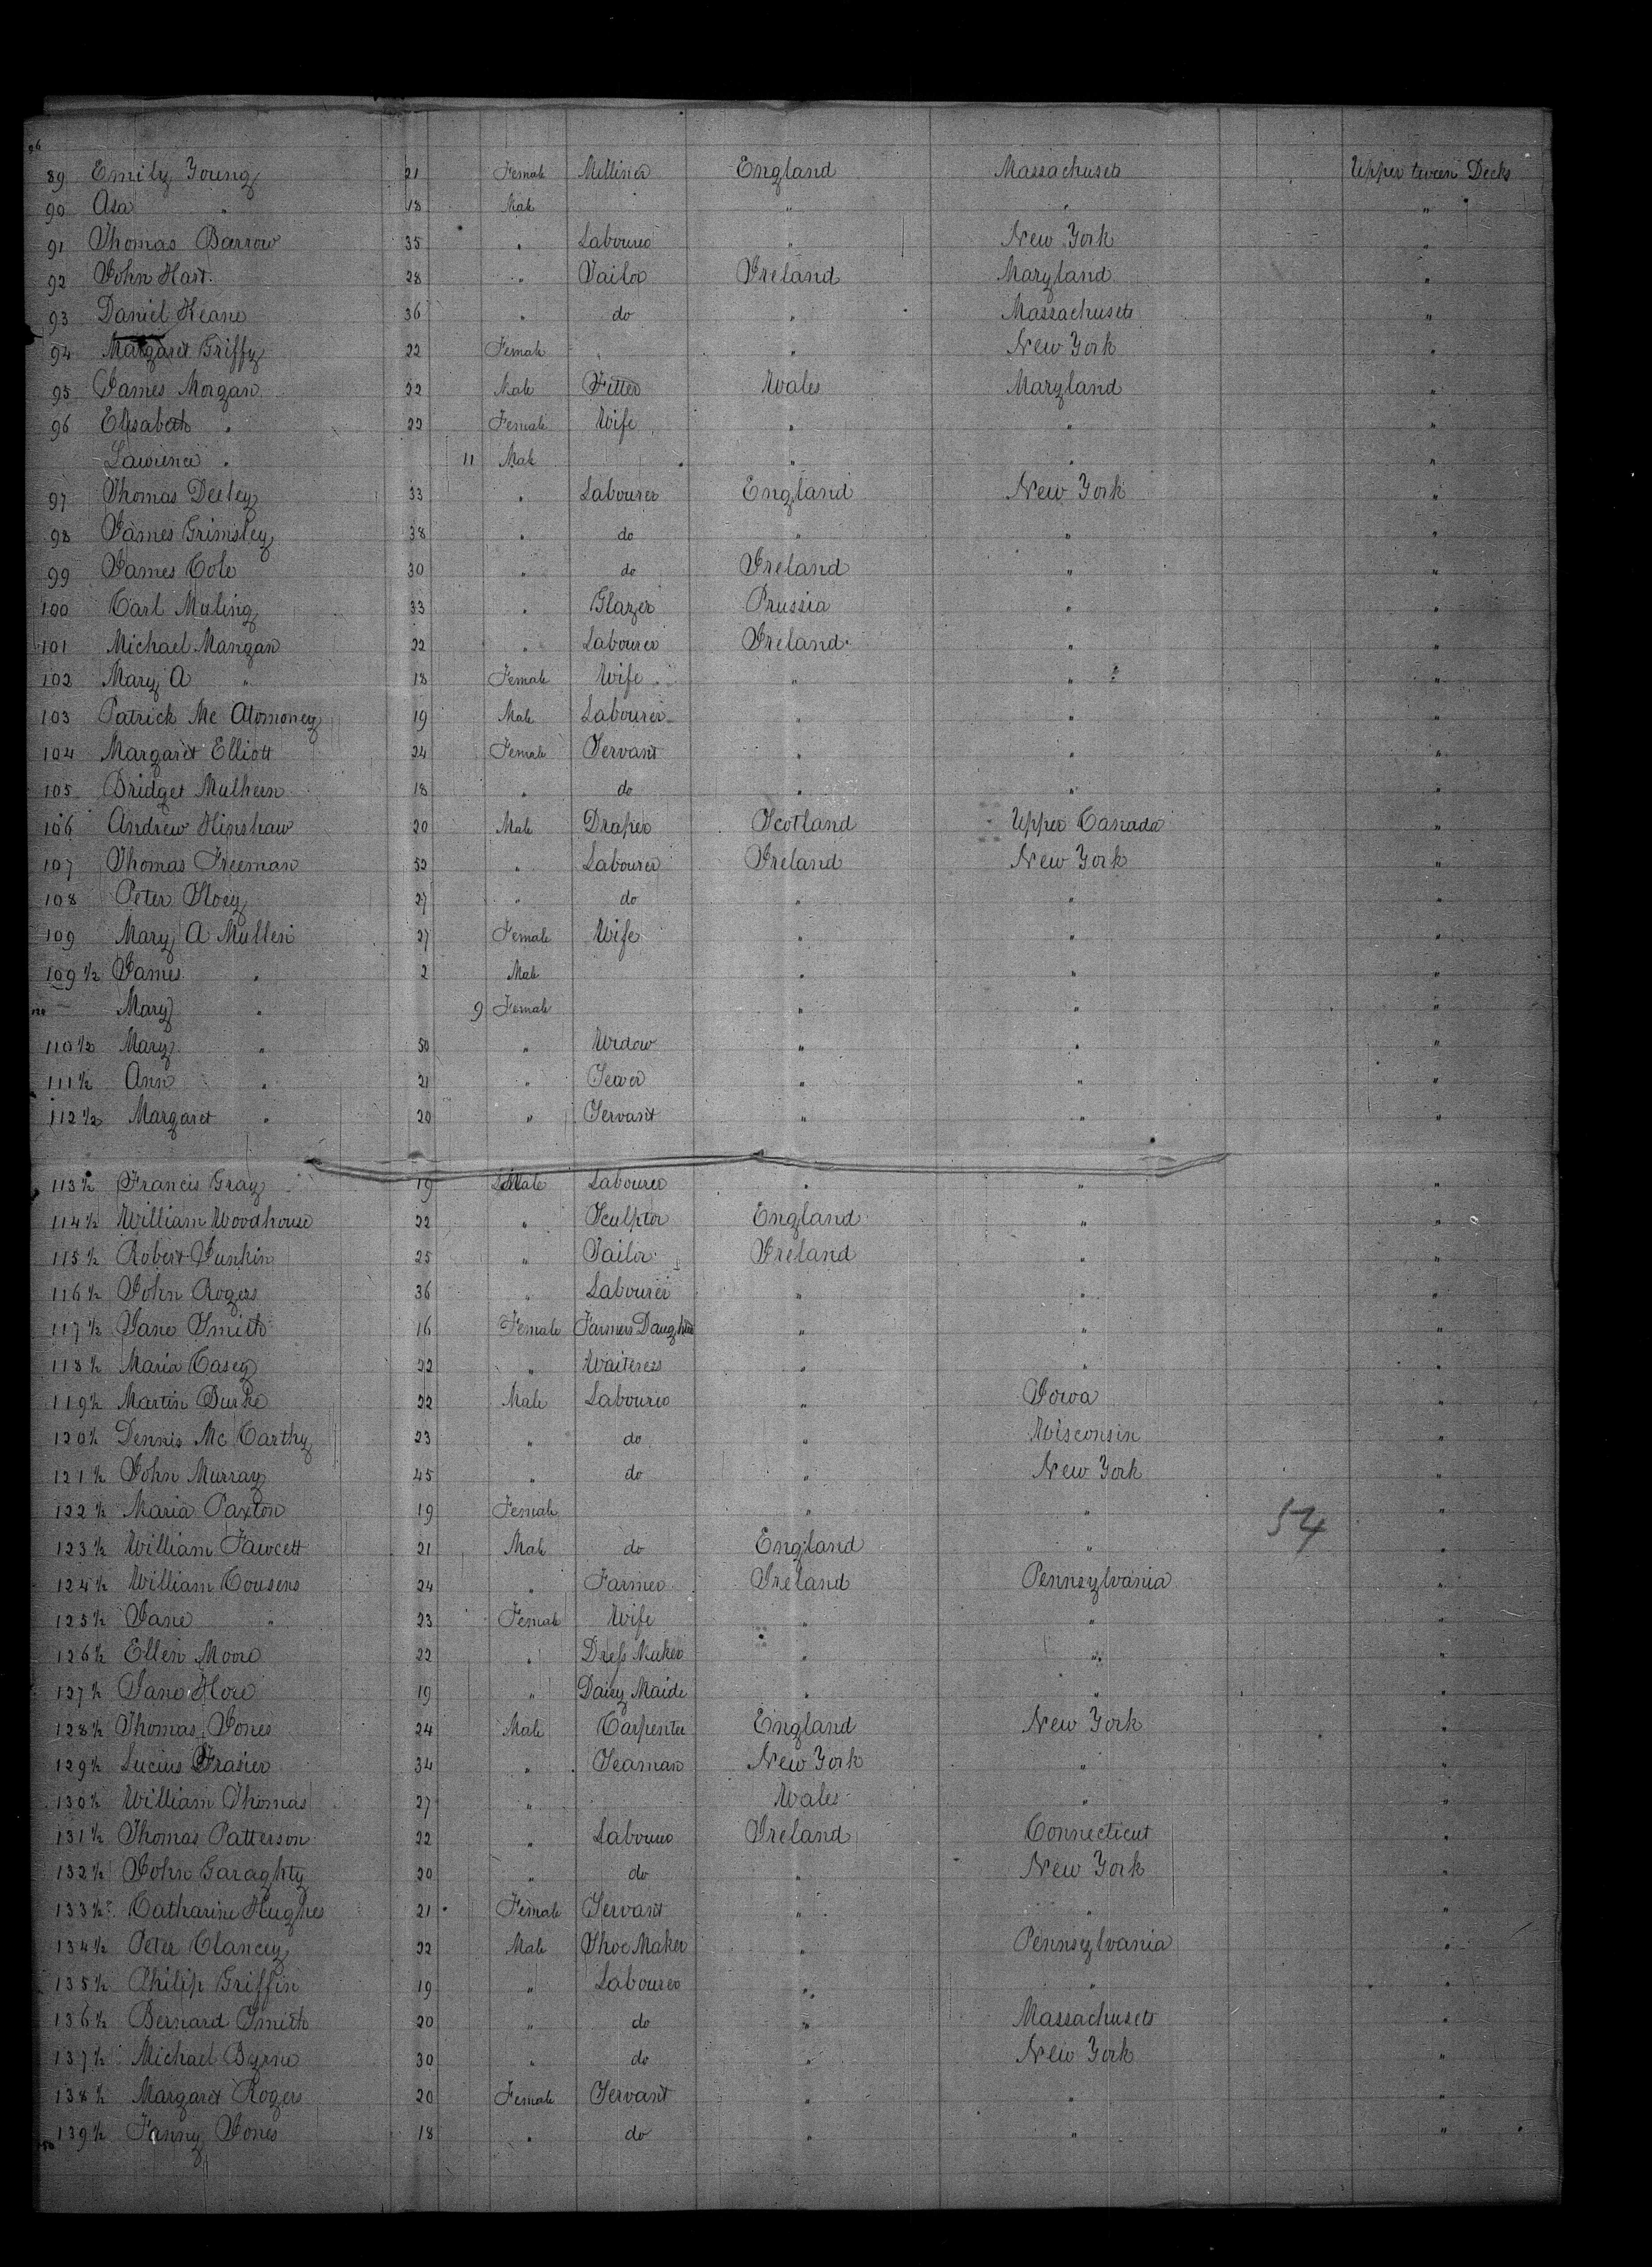 96
89 Emily Young 21 Female Milliner England Massachusets Upper tween Decks
90 Asa " 18 Male " " "
91 Thomas Barrow 35 " Labourer " New York "
92 John Hart. 28 " Tailor Ireland Maryland "
93 Daniel Keane 36 " do " Massachusets "
94 Margaret Griffy 22 Female " New York "
95 James Morgan 22 Male Fitter Wales Maryland "
96 Elisabeth " 22 Female Wife " " "
Lawrence " 11 Male " " "
97 Thomas Deeley 33 " Labourer England New York "
98 James Grimsley 38 " do " " "
99 James Cole 30 " do Ireland " "
100 Carl Muling 33 " Glazer Prussia " "
101 Michael Mangan 22 " Labourer Ireland " "
102 Mary A " 18 Female Wife " " "
103 Patrick Mc Alomoney 19 Male Labourer " " "
104 Margaret Elliott 24 Female Servant " " "
105 Bridget Mulhern 18 " do " " "
106 Andrew Hinshaw 20 Male Draper Scotland Upper Canada "
107 Thomas Freeman 52 " Labourer Ireland New York "
108 Peter Hoey 27 " do " " "
109 Mary A Mullen 27 Female Wife " " "
109 1/2 James " 2 Male " " "
Mary " 9 Female " " "
110 1/2 Mary " 50 " Widow " " "
111 1/2 Ann " 21 " Sewer " " "
112 1/2 Margaret " 20 " Servant " " "
113 1/2 Francis Gray 19 Male Labourer " " "
114 1/2 William Woodhouse 22 " Sculptor England " "
115 1/2 Robert Junkin 25 " Tailor Ireland " "
116 1/2 John Rogers 36 " Labourer " " "
117 1/2 Jane Smith 16 Female Farmers Daughter " " "
118 1/2 Maria Casey 22 " Waitress " " "
119 1/2 Martin Burke 22 Male Labourer " Iowa "
120 1/2 Dennis Mc Carthy 23 " do " Wisconsin "
121 1/2 John Murray 45 " do " New York "
122 1/2 Maria Paxton 19 Female " " 54 "
123 1/2 William Fawcett 21 Male do England " "
124 1/2 William Cousens 24 " Farmer Ireland Pennsylvania "
125 1/2 Jane " 23 Female Wife " " "
126 1/2 Ellen Moore 22 " Dress Maker " " "
127 1/2 Jane Hore 19 " Dairy Maide " " "
128 1/2 Thomas Jones 24 Male Carpenter England New York "
129 1/2 Lucius Frasier 34 " Seaman New York " "
130 1/2 William Thomas 27 " Wales " "
131 1/2 Thomas Patterson 22 " Labourer Ireland Connecticut "
132 1/2 John Garaghty 20 " do " New York "
133 1/2 Catharine Hughes 21 Female Servant " " "
134 1/2 Peter Clancey 22 Male Shoe Maker " Pennsylvania "
135 1/2 Philip Griffin 19 " Labourer " " "
136 1/2 Bernard Smith 20 " do " Massachusets "
137 1/2 Michael Byrne 30 " do " New York "
138 1/2 Margaret Rogers 20 Female Servant " " "
139 1/2 Fanny Jones 18 " do " " "